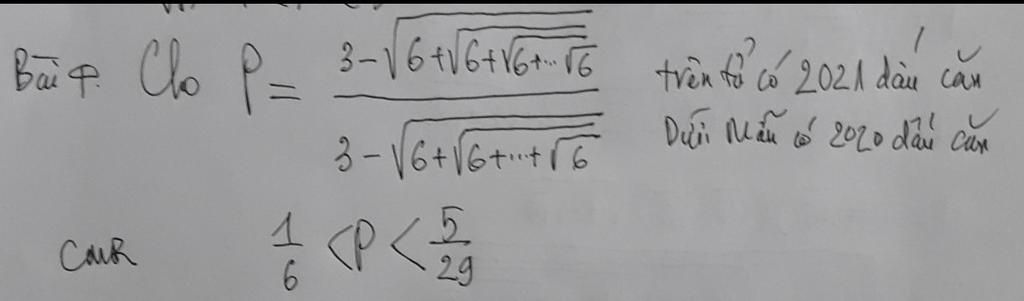 Bài 4. Cho P = \frac{3-\sqrt{6+\sqrt{6+\sqrt{6+...\sqrt{6}}}}}{3-\sqrt{6+\sqrt{6+...+\sqrt{6}}}}
trên tử có 2021 dấu căn
Dưới Mẫu có 2020 dấu căn
CMR \frac{1}{6} < P < \frac{5}{29}